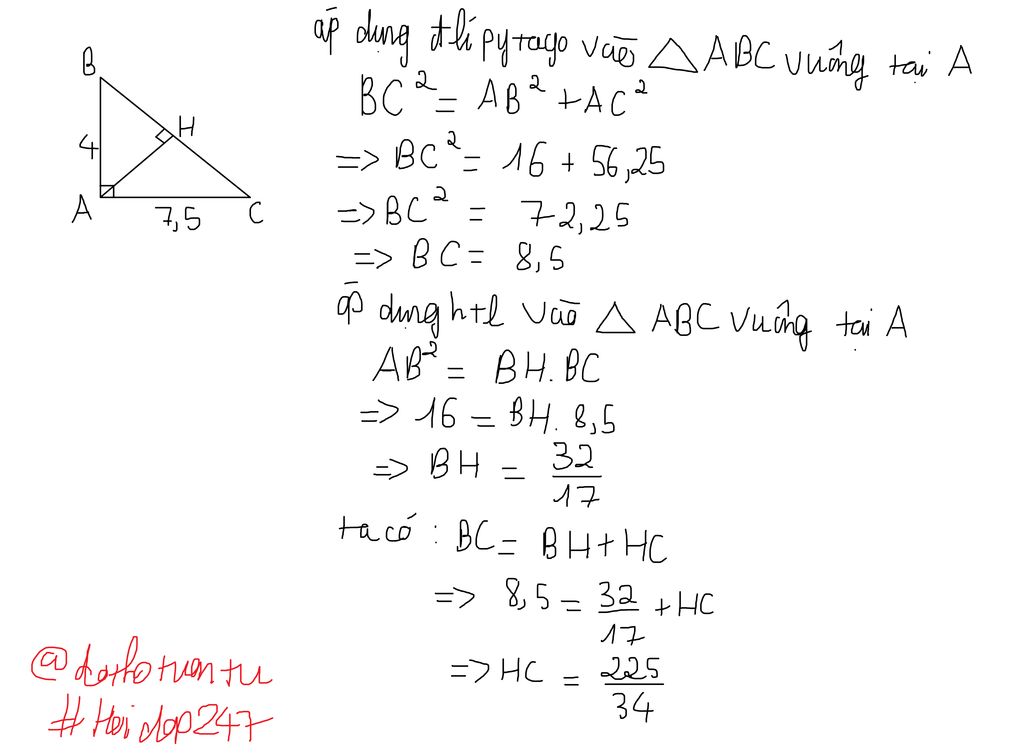 B
4
H
A
7,5
C
áp dụng đlí pytago vào △ ABC vuông tại A
BC² = AB² + AC²
=> BC² = 16 + 56,25
=> BC² = 72,25
=> BC = 8,5
áp dụng htl vào △ ABC vuông tại A
AB² = BH. BC
=> 16 = BH. 8,5
=> BH = 32/17
ta có : BC = BH + HC
=> 8,5 = 32/17 + HC
=> HC = 225/34
#Hoidap247